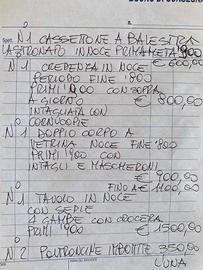 N 1 CASSETTONE A BALESTRA
LASTRONATO IN NOCE PRIMA META' 900
€ 600,00
N 1 CREDENZA IN NOCE
PERIODO FINE '800
PRIMI '900 CON SOPRA
A GIORNO € 800,00
INTAGLIATA CON
CORNUCOPIE
N 1 DOPPIO CORPO A
VETRINA NOCE FINE '800
PRIMI '900 CON
INTAGLI E MASCHERONI
€ 900,00
FINO A € 1100,00
N 1 TAVOLO IN NOCE
CON SEDIE
A GAMBE CON CROCERA
PRIMI '900 € 1500,00
N 2 POLTRONCINE IMBOTTITE 350,00
L'UNA